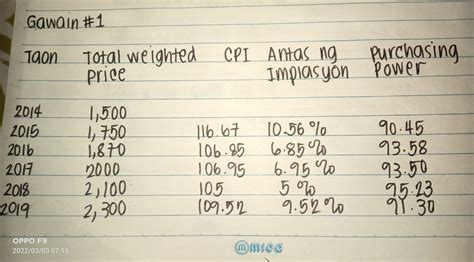 Gawain #1
Taon Total weighted price CPI Antas ng Implasyon Purchasing Power
2014 1,500
2015 1,750 116.67 10.56% 90.45
2016 1,870 106.85 6.85% 93.58
2017 2000 106.95 6.95% 93.50
2018 2,100 105 5% 95.23
2019 2,300 109.52 9.52% 91.30
OPPO F9
2022/03/03 07:15